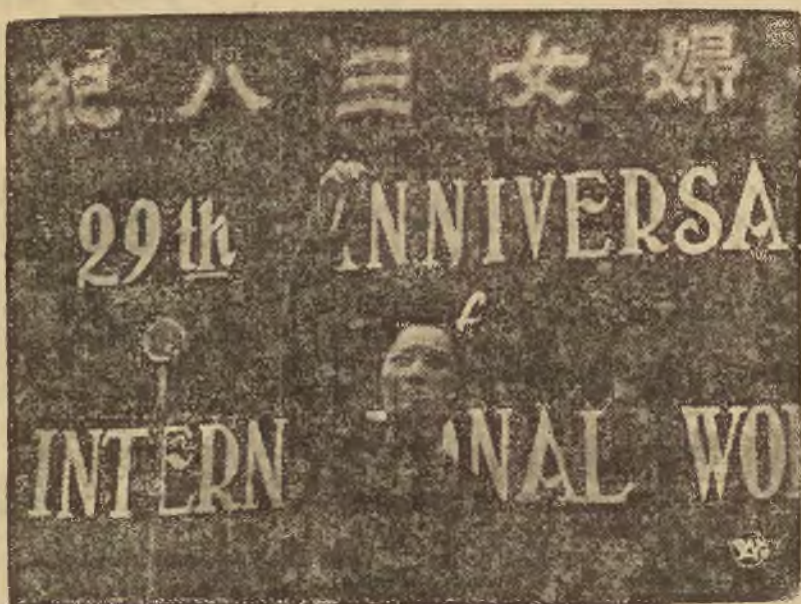 婦女三八紀
29th ANNIVERSA
f
INTERN NAL WO